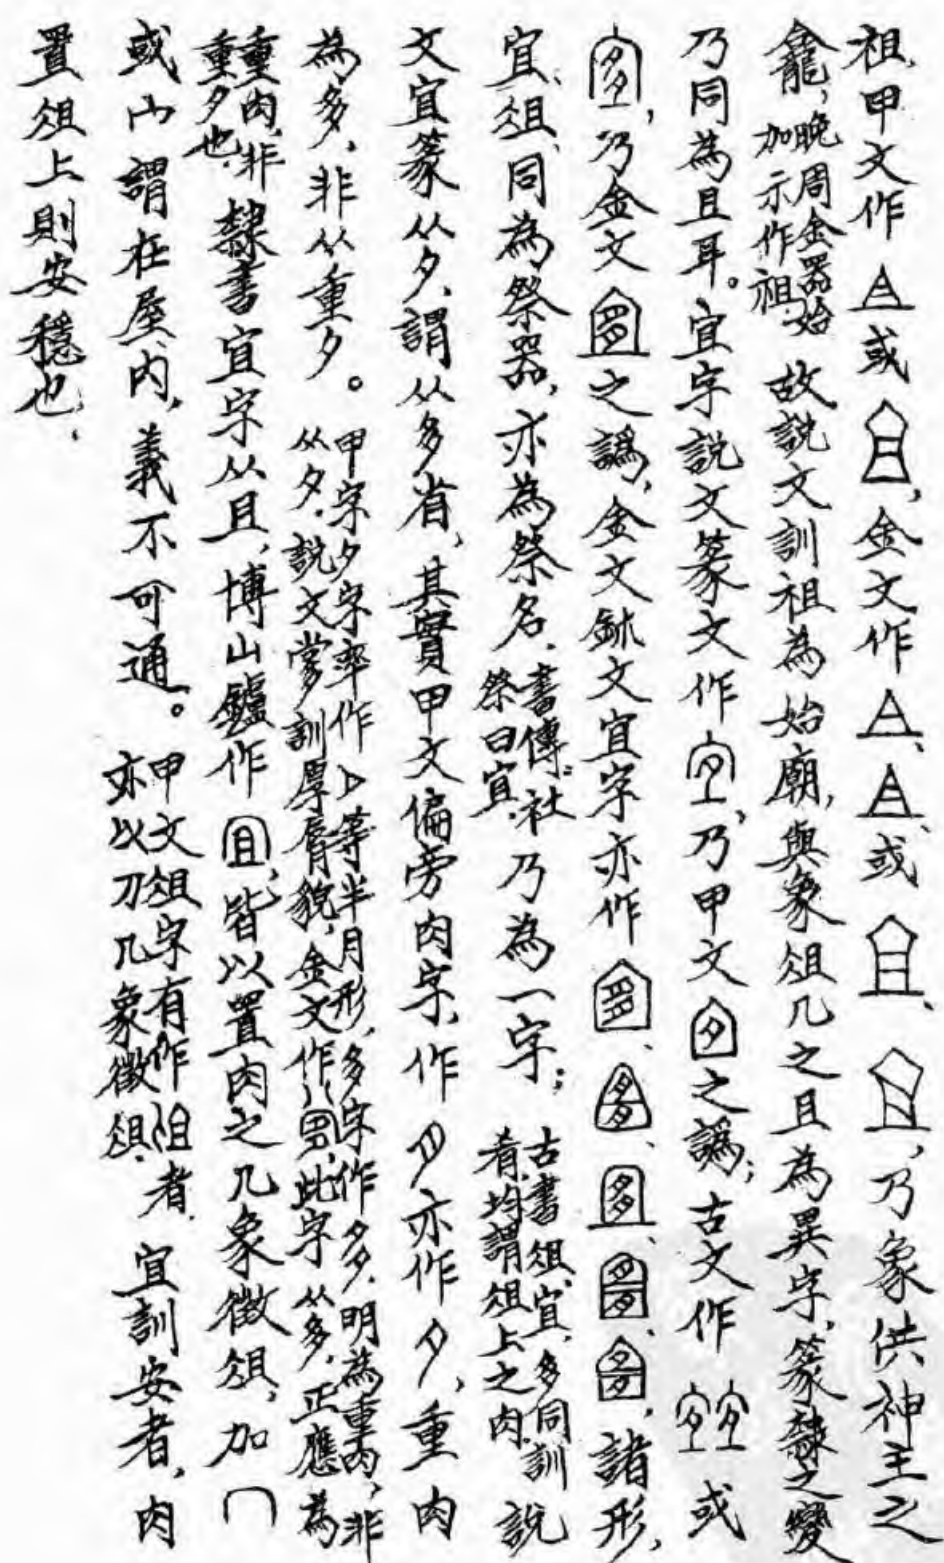 祖,甲文作或,金文作、、或、,乃象供神主之
龕,晚周金器始加示作祖,故說文訓祖為始廟,與象俎几之且為異字,篆隸之變
乃同為且耳。宜字說文篆文作,乃甲文之譌;古文作或
,乃金文之譌,金文鉥文宜字亦作、、、、,諸形,
宜、俎、同為祭器,亦為祭名.書傳:社祭曰宜.乃為一字;古書俎、宜、多同訓肴,均謂俎上之肉,說
文宜篆从夕,謂从多省,其實甲文偏旁肉字,作亦作夕,重肉
為多,非从重夕。甲字夕字率作D等半月形,多字作多,明為重肉,非从夕.說文訓厚脣貌,金文作,此字从多,正應為
重肉,非重夕也.隸書宜字从且,博山鑪作,皆以置肉之几象徵俎,加冂
或宀謂在屋內,義不可通。甲文俎字有作者.亦以刀几象徵俎.宜訓安者,肉
置俎上則安穩也.